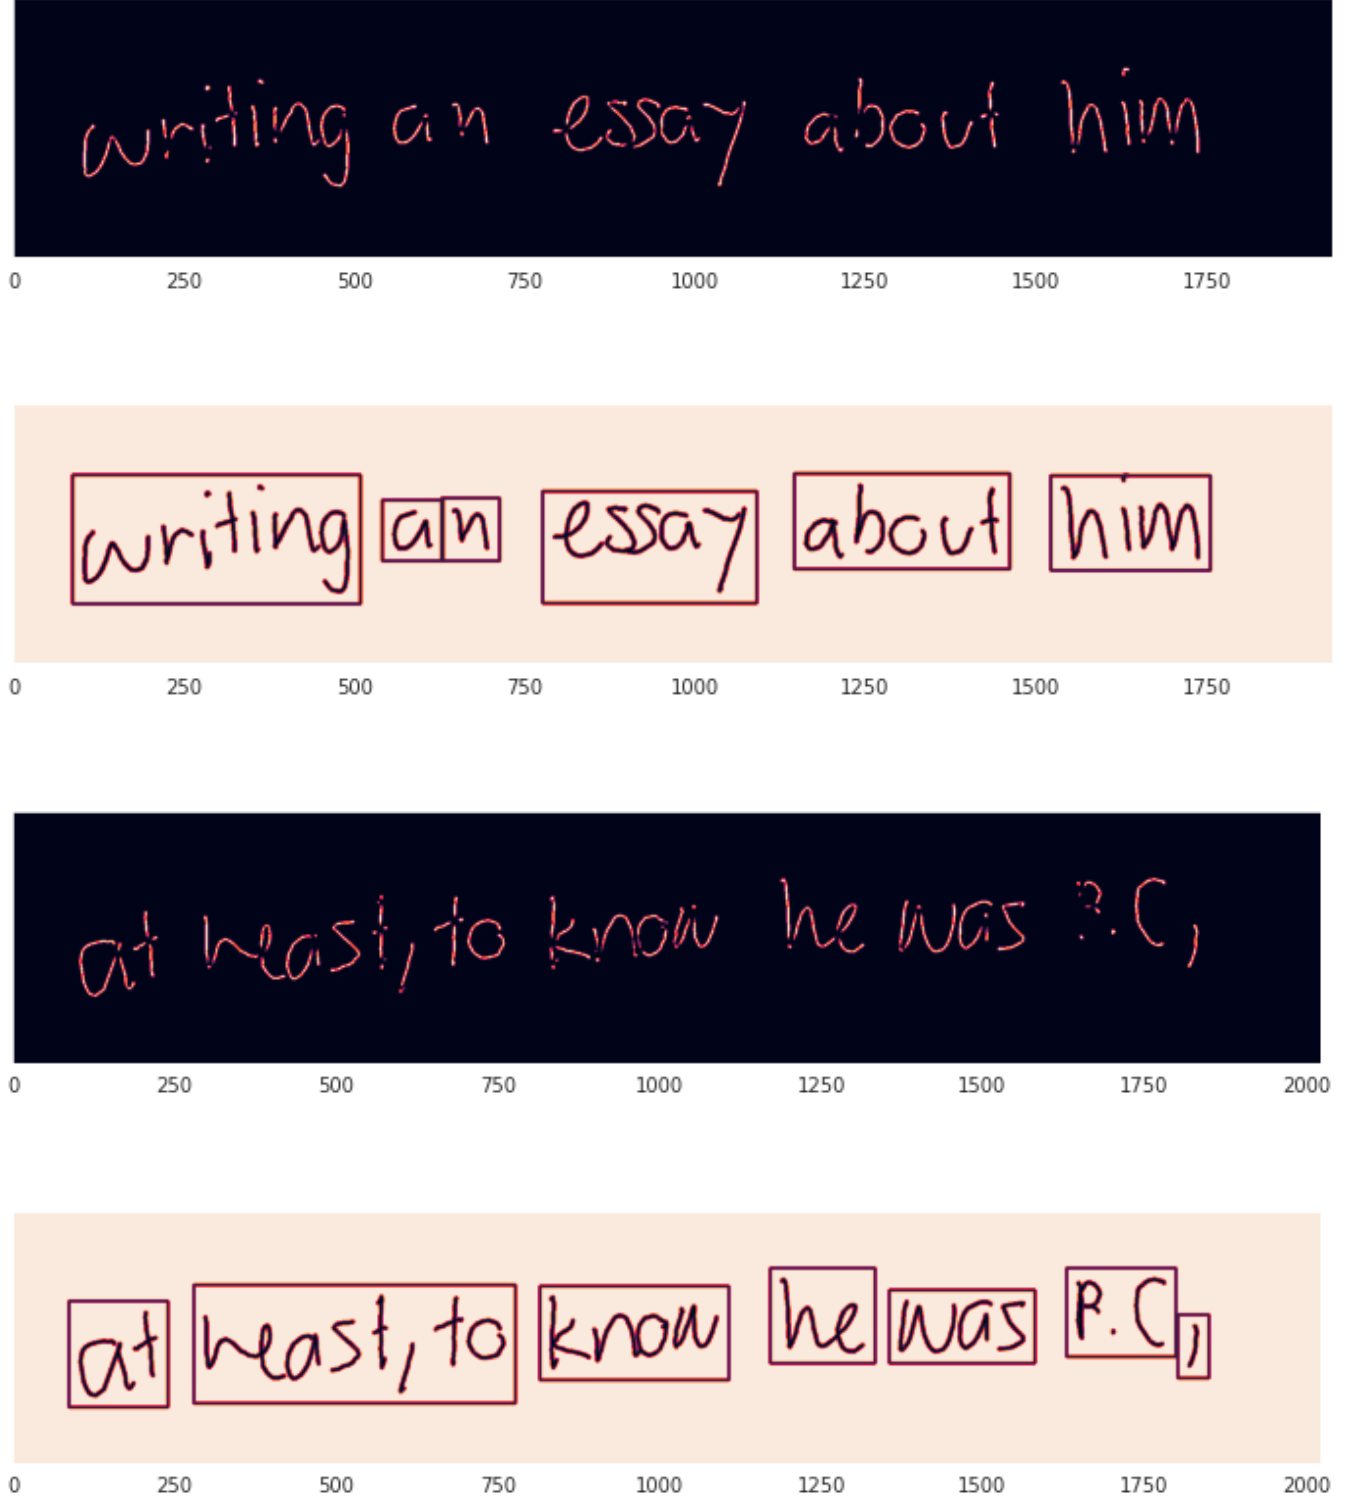 writing an essay about him
0 250 500 750 1000 1250 1500 1750
writing an essay about him
0 250 500 750 1000 1250 1500 1750
at heast, to know he was P.C,
0 250 500 750 1000 1250 1500 1750 2000
at heast, to know he was P.C,
0 250 500 750 1000 1250 1500 1750 2000